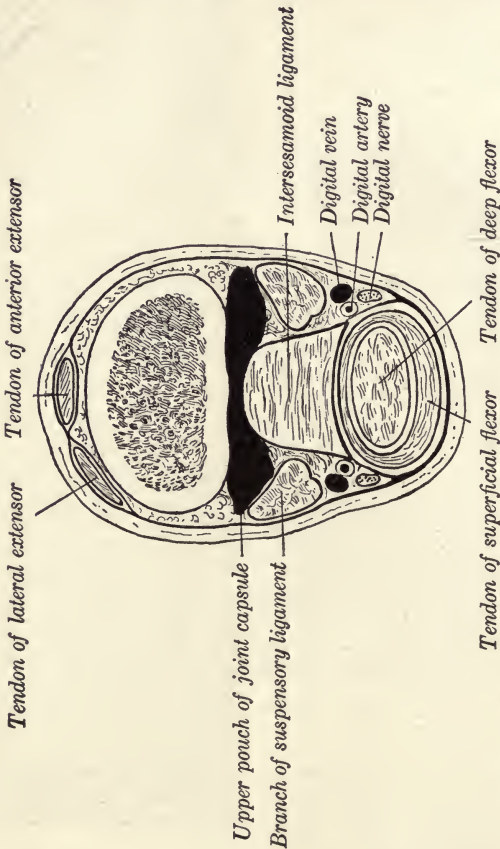 Tendon of lateral extensor
Tendon of anterior extensor
Upper pouch of joint capsule
Branch of suspensory ligament
Intersesamoid ligament
Digital vein
Digital artery
Digital nerve
Tendon of superficial flexor
Tendon of deep flexor